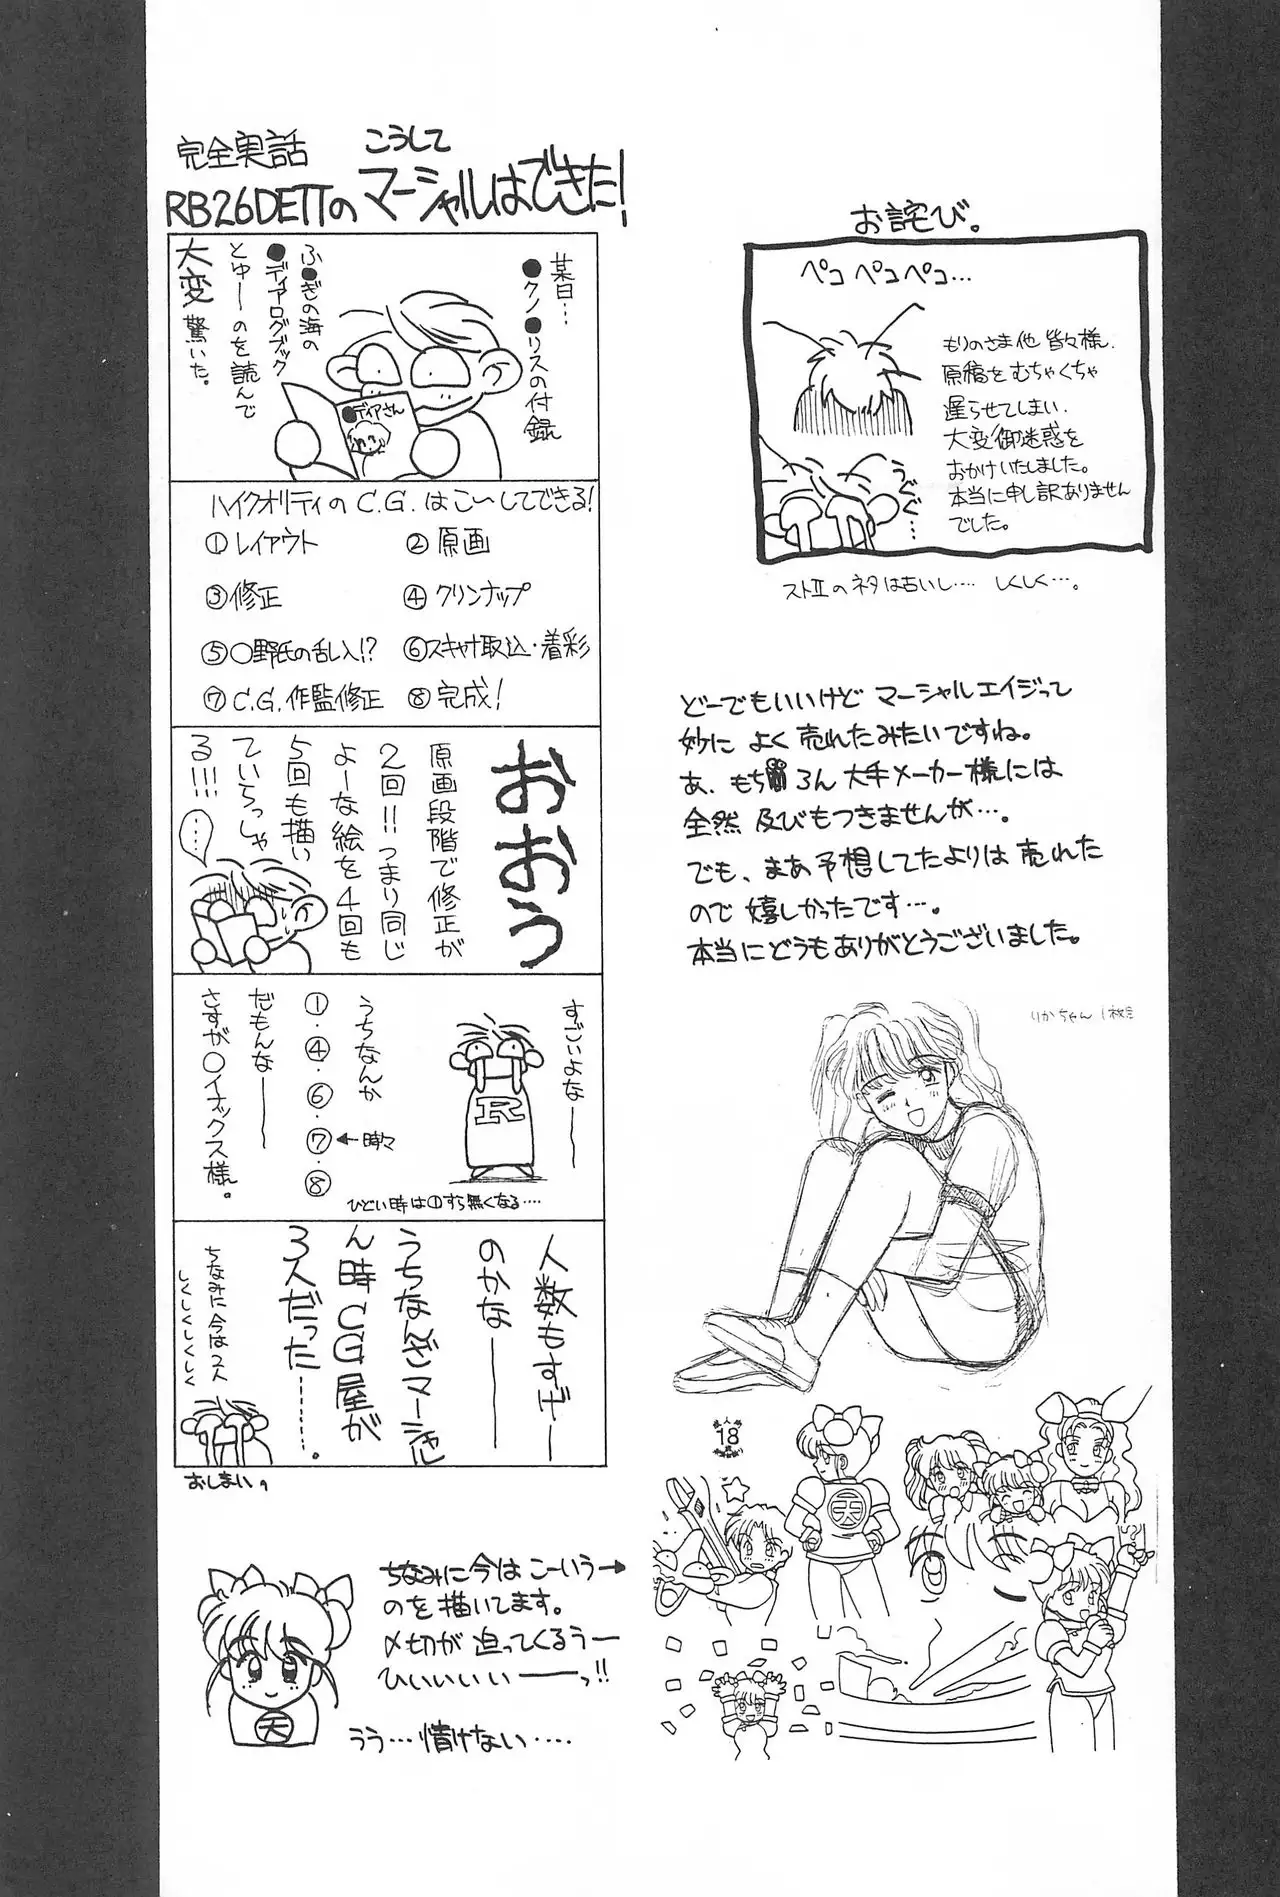 完全実話
こうして
RB26DETTの
マーシャルはできた!
某日…
●クノ●リスの付録
ふ●ぎの海の
●ディアログブック
とゆーのを読んで
大変驚いた。
●ディアさん
ハイクオリティのC.G.はこ〜してできる!
①レイアウト
②原画
③修正
④クリンナップ
⑤〇野氏の乱入!?
⑥スキャナ取込・着彩
⑦C.G.作監修正
⑧完成!
おおう
原画段階で修正が
2回!!つまり同じ
よーな絵を4回も
5回も描い
ていらっしゃ
る!!!
……
すごいよな——
R
うちなんか
①・④・⑥・⑦・⑧
←時々
だもんな——
さすが〇イナックス様。
ひどい時は①すら無くなる‥‥
人数もすげー
のかな——
うちなんざマーシャル
ん時CG屋が
3人だった………。
ちなみに今は2人
しくしくしくしく
おしまい。
ちなみに今はこーいう→
のを描いてます。
〆切が迫ってくるうー
ひいいいい——っ!!
うう…情けない‥‥
天
お詫び。
ペコペコペコ…
もりのさま他皆々様、
原稿をむちゃくちゃ
遅らせてしまい、
大変御迷惑を
おかけいたしました。
本当に申し訳ありません
でした。
うぐぐ…
ストⅡのネタは古いし‥‥しくしく…。
どーでもいいけどマーシャルエイジって
妙によく売れたみたいですね。
あ、もちろん大手メーカー様には
全然及びもつきませんが…。
でも、まあ予想してたよりは売れた
ので嬉しかったです…。
本当にどうもありがとうございました。
りかちゃん1枚目
18
天